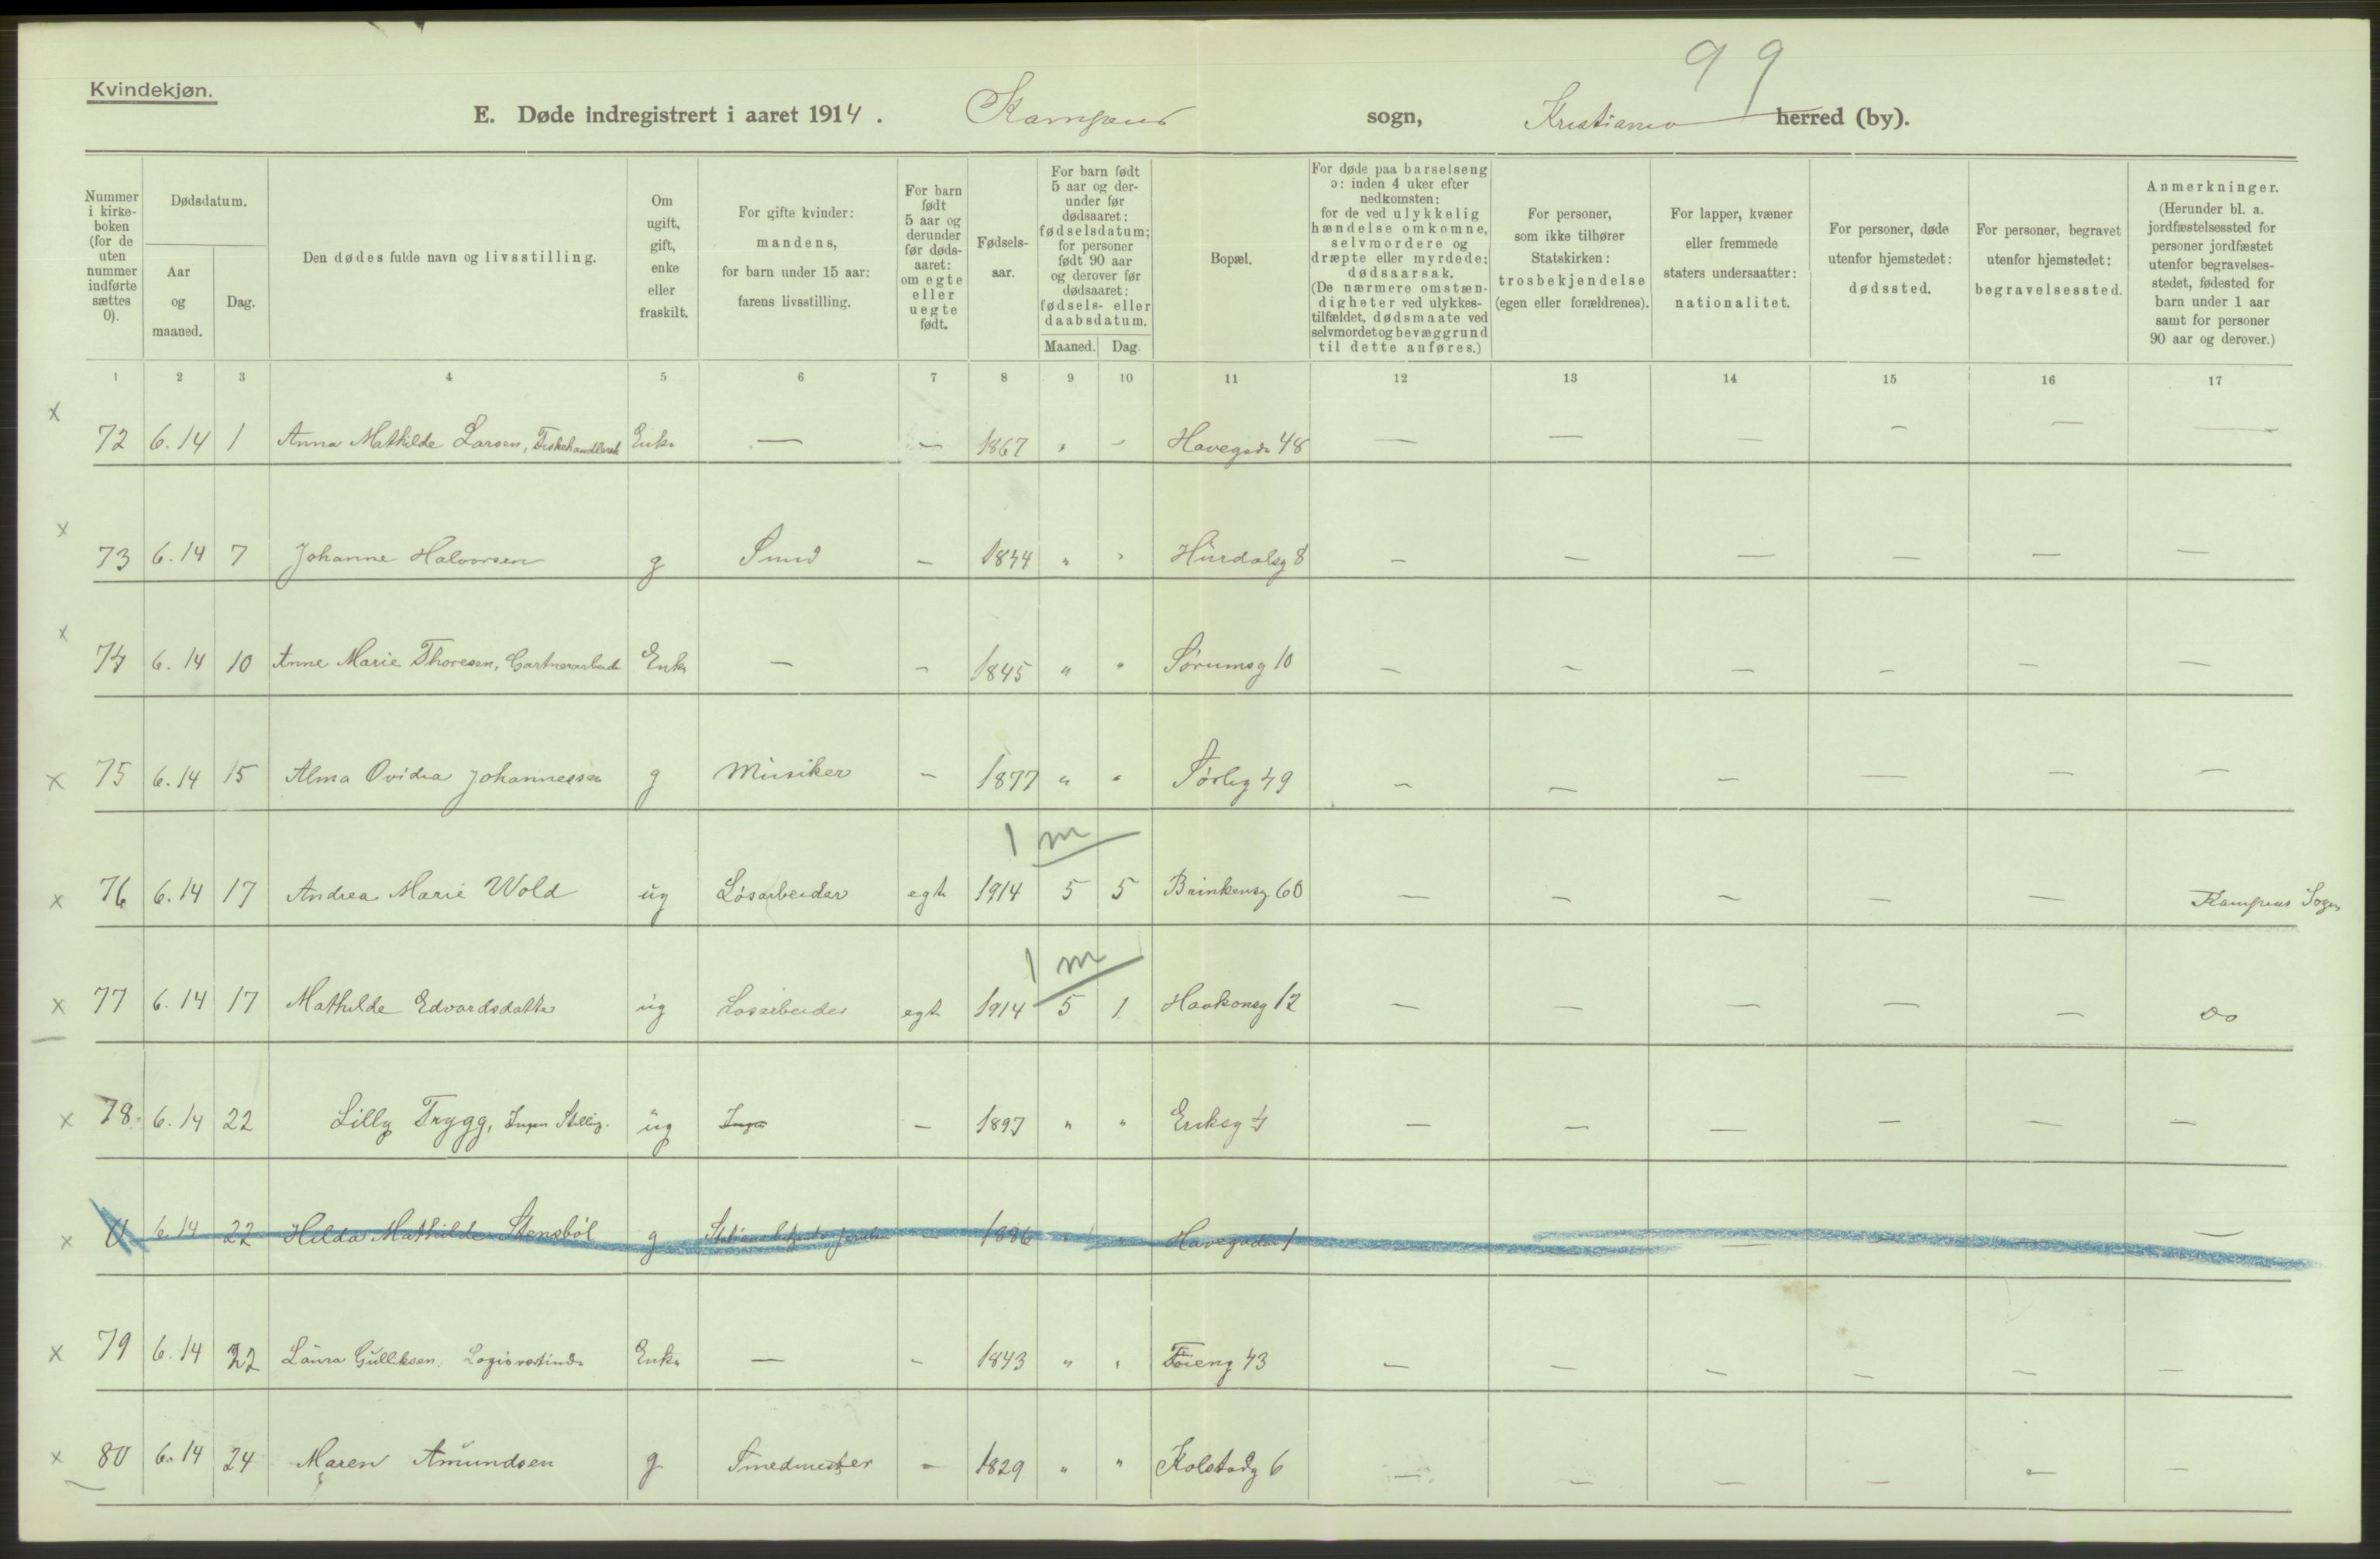 99
Kvindekjøn.
E. Døde indregistrert i aaret 1914. Kampens sogn, Kristiania herred (by).
Nummer i kirke- boken (for de uten nummer indførte sættes 0).
Dødsdatum.
Aar og maaned.
Dag.
Den dødes fulde navn og livsstilling.
Om ugift, gift, enke eller fraskilt.
For gifte kvinder: mandens, for barn under 15 aar: farens livsstilling.
For barn født 5 aar og derunder før døds- aaret: om egte eller uegte født.
Fødsels- aar.
For barn født 5 aar og der- under før dødsaaret: fødselsdatum; for personer født 90 aar og derover før dødsaaret: fødsels- eller daabsdatum.
Maaned. Dag.
Bopæl.
For døde paa barselseng ɔ: inden 4 uker efter nedkomsten: for de ved ulykkelig hændelse omkomne, selvmordere og dræpte eller myrdede: dødsaarsak. (De nærmere omstæn- digheter ved ulykkes- tilfældet, dødsmaate ved selvmordet og bevæggrund til dette anføres.)
For personer, som ikke tilhører Statskirken: trosbekjendelse (egen eller forældrenes).
For lapper, kvæner eller fremmede staters undersaatter: nationalitet.
For personer, døde utenfor hjemstedet: dødssted.
For personer, begravet utenfor hjemstedet: begravelsessted.
Anmerkninger. (Herunder bl. a. jordfæstelsessted for personer jordfæstet utenfor begravelses- stedet, fødested for barn under 1 aar samt for personer 90 aar og derover.)
1 2 3 4 5 6 7 8 9 10 11 12 13 14 15 16 17
x 72 6.14 1 Anna Mathilde Larsen, Enke — — 1867 " - Havegade 48 — — — — — —
x 73 6.14 7 Johanne Halvorsen g Smed — 1844 " " Hurdalsg 8 — — — — — —
x 74 6.14 10 Anne Marie Thoresen, Gartnerarbeid Enke — — 1845 " " Sørumsg 10 — — — — — —
x 75 6.14 15 Alma Ovidia Johannessen g Musiker — 1877 " " Sørlig 49 — — — — — —
1 m
x 76 6.14 17 Andrea Marie Wold ug Løsarbeider egte 1914 5 5 Brinkensg 60 — — — — — Kampens Sogn
1 m
x 77 6.14 17 Mathilde Edvardsdatter ug Løsarbeider egte 1914 5 1 Haakonsg 12 — — — — — do
x 78 6.14 22 Lilly Trygg, Ingen Stilling. ug Ingen — 1897 " " Eriksg 4 — — — — — —
x 0 6.14 22 Hilda Mathilde Stensbøl g — 1886 " " Havegaden 1 — — — — — —
x 79 6.14 22 Laura Gulliksen, Logisvertinde Enke — - 1843 " " 43 — — — — — —
x 80 6.14 24 Maren Amundsen g Smedmester - 1829 " " Kolstadg 6 — — — — — —